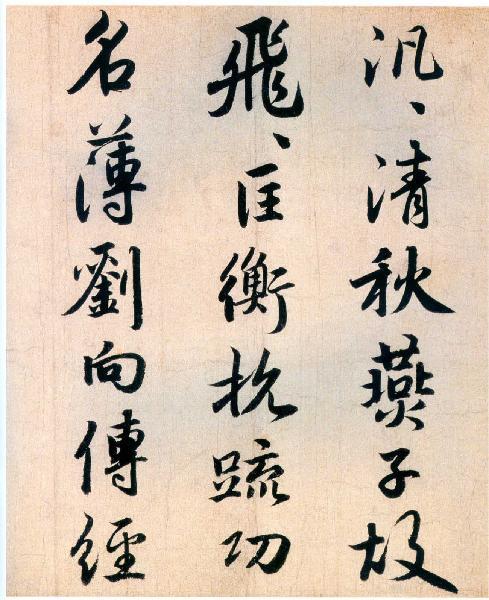 汎、清秋燕子故
飛、匡衡抗疏功
名薄劉向傳經